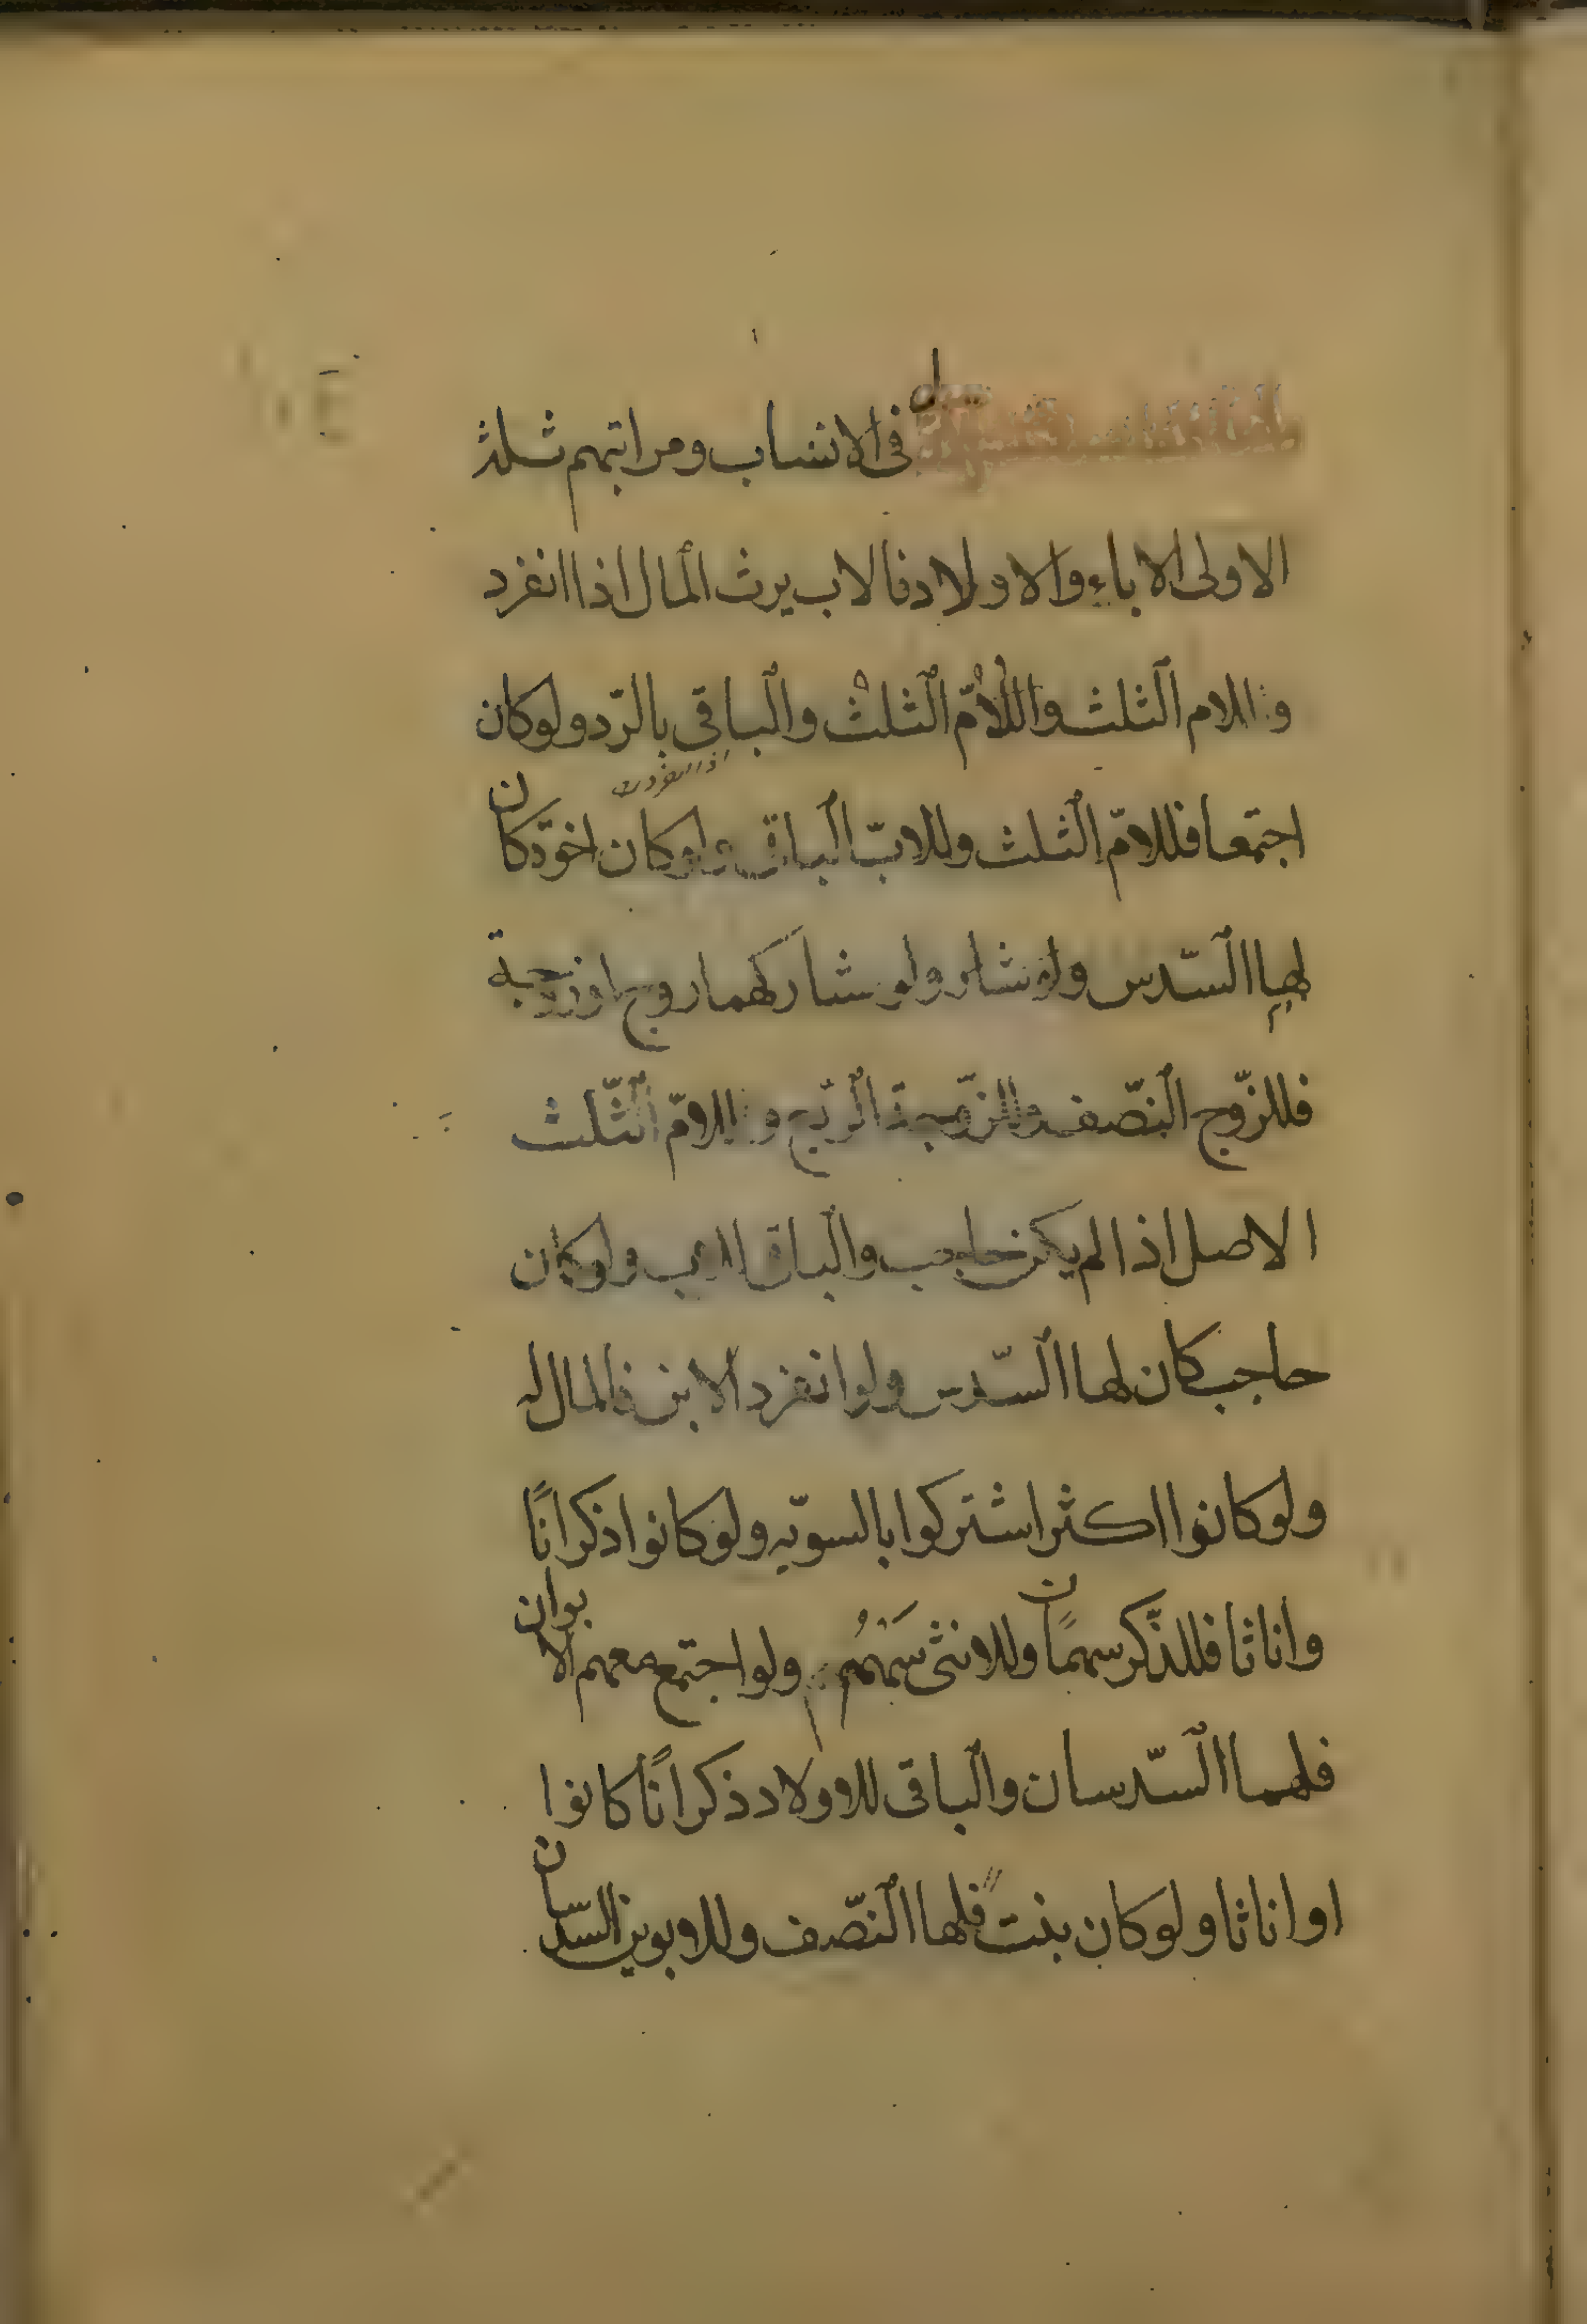 فى الانساب ومراتبهم ثلثة
الاولى الاباء والاولاد فالاب يرث المال اذا انفرد
وللام الثلث وللاُمّ الثلث والباقى بالرّد ولو كان
اذا انفردت
اجتمعا فللامّ الثلث وللابّ الباقى ولو كان اخوة كان
لها السّدس ولو شار ولو شاركهما زوج او زوجة
فللزّوج النّصف وللزّوجة الرّبع وللامّ الثّلث
الاصل اذا لم يكن حاجب والباقى للاب ولو كان
حاجب كان لها السّدس ولو انفرد الابن فالمال له
ولو كانوا اكثر اشتركوا بالسويّه ولو كانوا ذكرانًا
واناثا فللذّكر سهمان وللانثى سَهْمُ ولو اجتمع معهم الابوان
فلهما السّدسان والباقى للاولاد ذكرانًا كانوا
او اناثا ولو كان بنت فلها النّصف وللابوين السّدسان